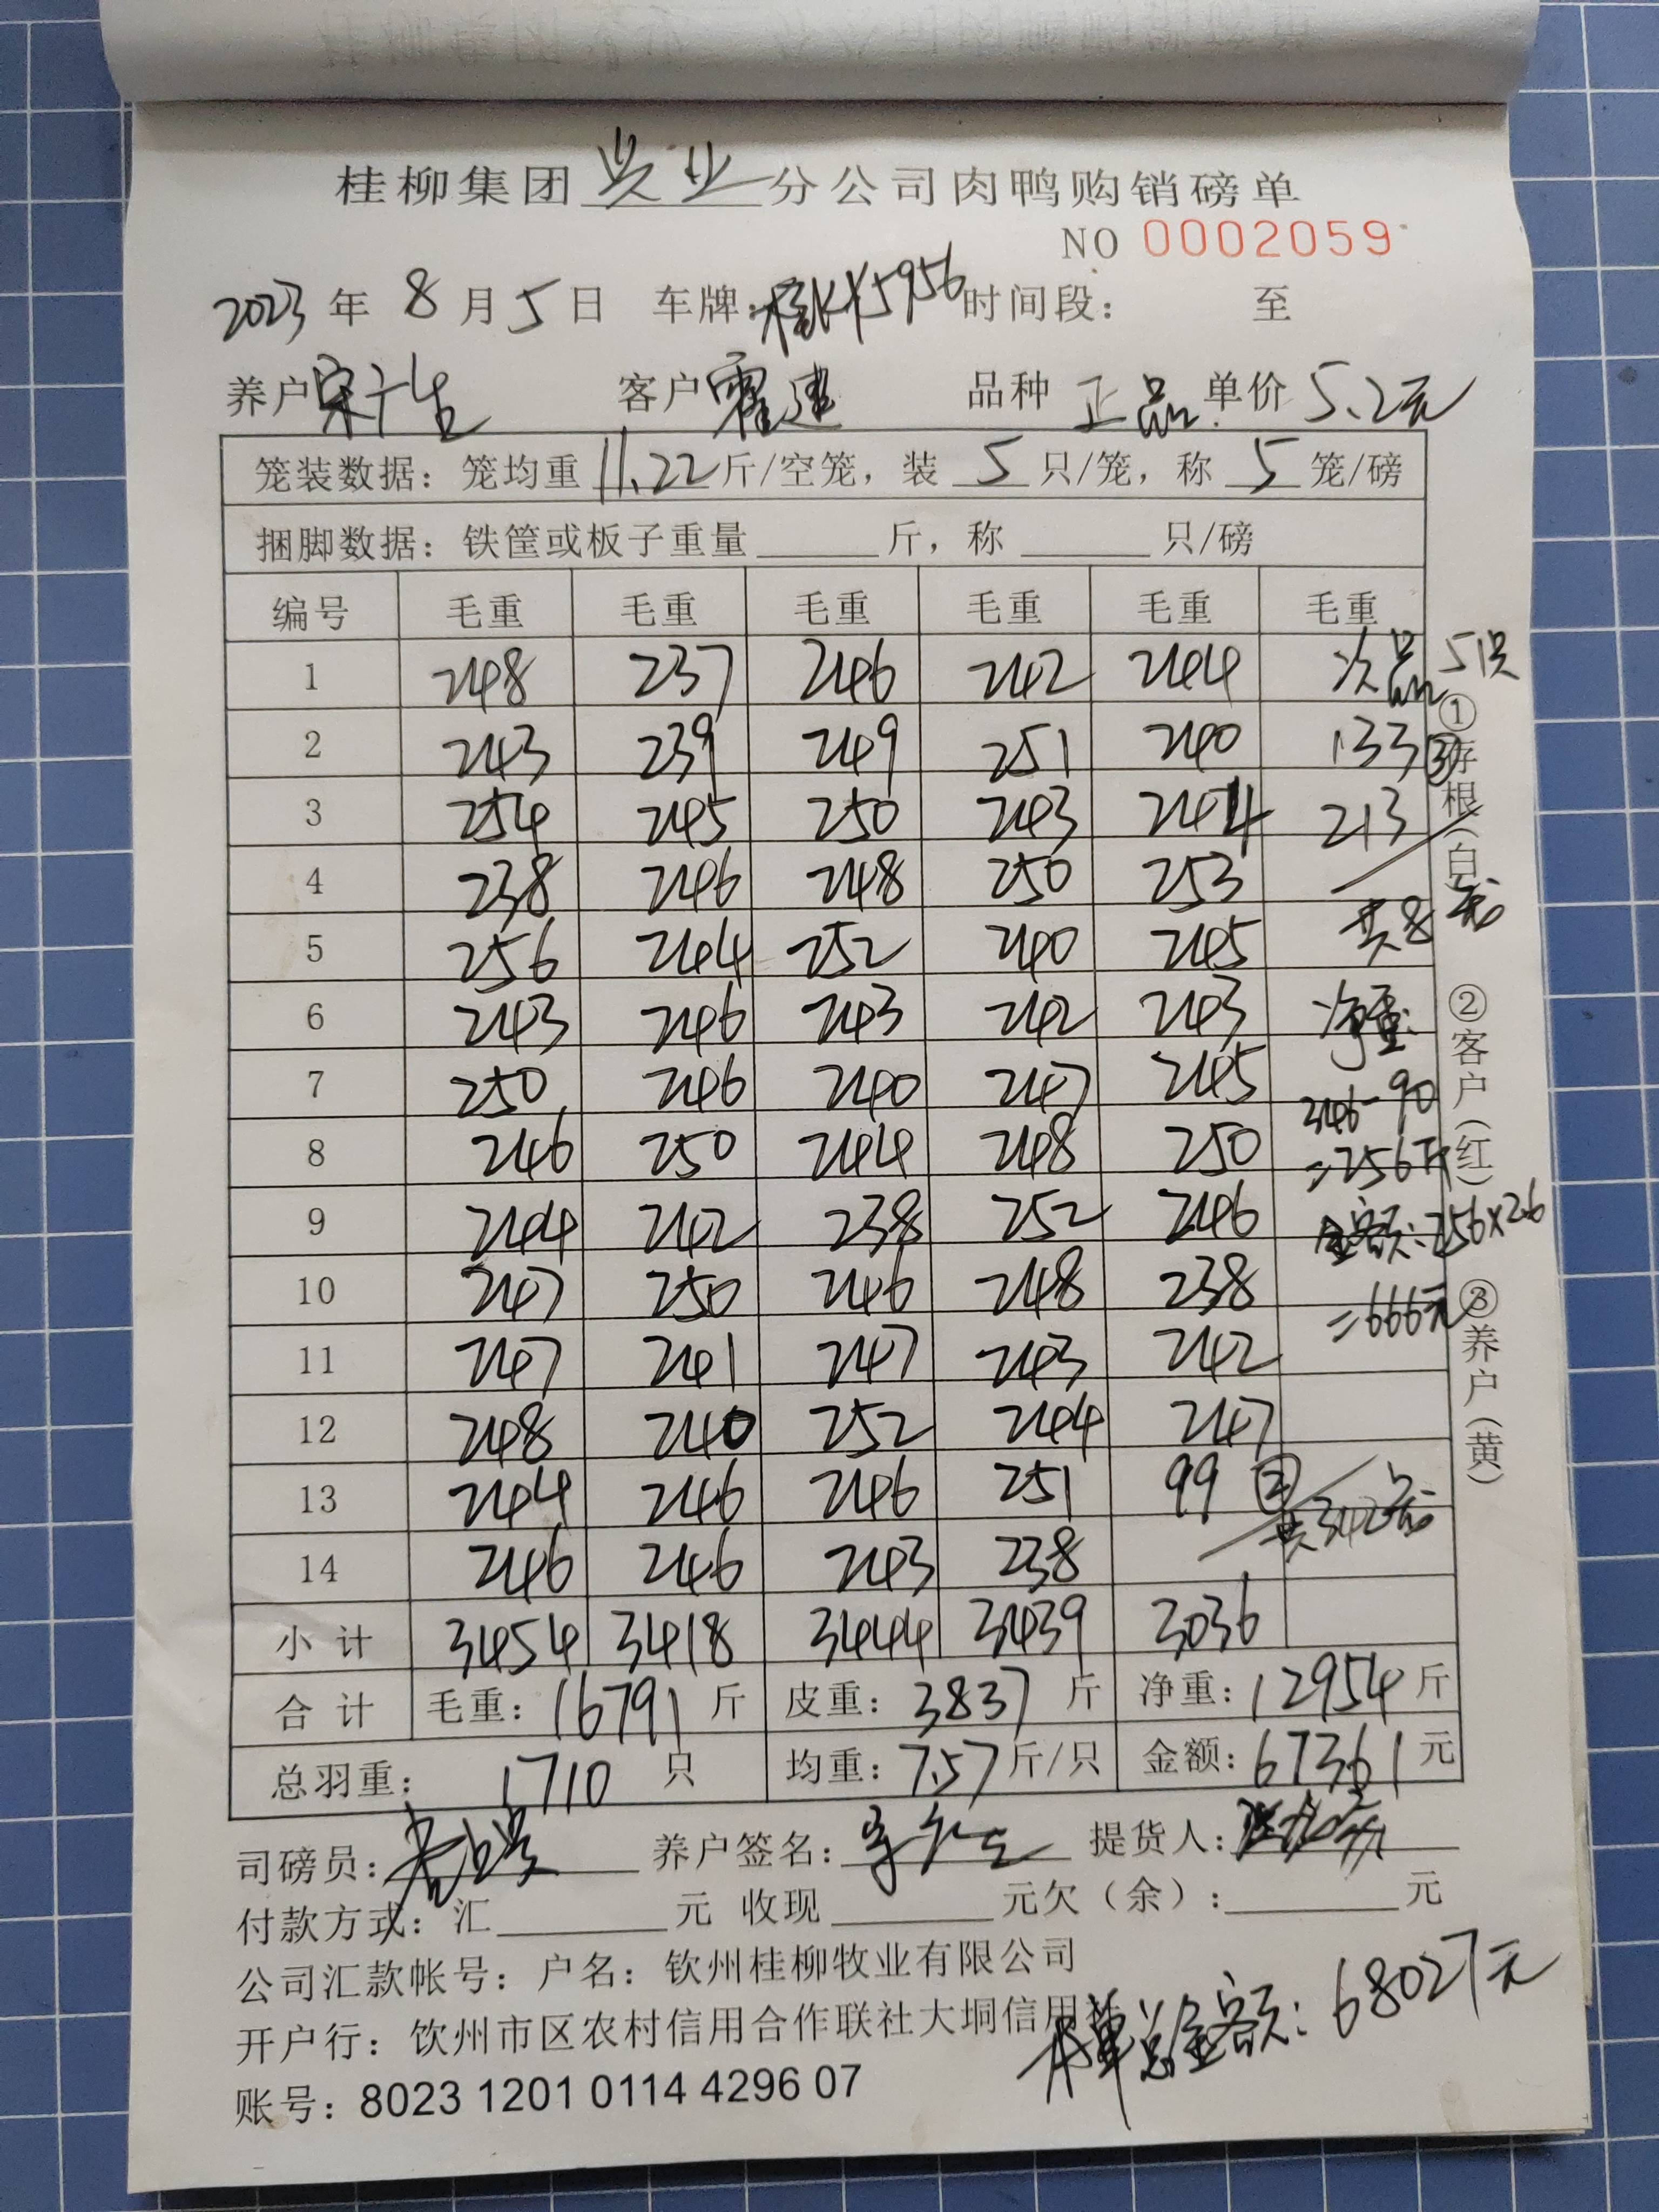 桂柳集团 兴业 分公司肉鸭购销磅单
NO 0002059
2023 年 8 月 5 日 车牌: 5956 时间段: 至
养户 宋广生 客户 霍建 品种 正品 单价 5.2元
笼装数据: 笼均重 11.22 斤/空笼, 装 5 只/笼, 称 5 笼/磅
捆脚数据: 铁筐或板子重量 斤, 称 只/磅
编号 毛重 毛重 毛重 毛重 毛重 毛重
1 248 237 246 242 244 次品 51只
2 243 239 249 251 240 133 ③
3 254 245 250 243 244 213
4 238 246 248 250 253
5 256 244 252 240 245 共8笼
6 243 246 243 242 243 净重:
7 250 246 240 247 245 346-90
8 246 250 244 248 250 =256斤
9 244 242 238 252 246 金额:256×2.6
10 247 250 246 248 238 =666元
11 247 241 247 243 242
12 248 240 252 244 247
13 244 246 246 251 99 ② 共342笼
14 246 246 243 238
小计 3454 3418 3444 3439 3036
合计 毛重: 16791 斤 皮重: 3837 斤 净重: 12954 斤
总羽重: 1710 只 均重: 7.57 斤/只 金额: 67361 元
①存根(白) ②客户(红) ③养户(黄)
司磅员: 养户签名: 提货人:
付款方式: 汇 元 收现 元欠(余): 元
公司汇款帐号: 户名: 钦州桂柳牧业有限公司
开户行: 钦州市区农村信用合作联社大垌信用社
本单总金额: 68027元
账号: 8023 1201 0114 4296 07